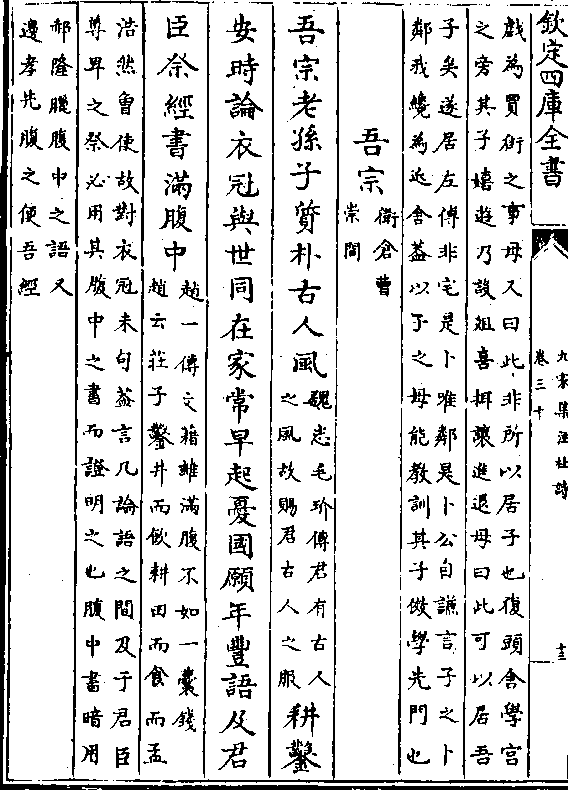 欽定四庫全書
九家集注杜詩
卷三十
十三
戲為賈衒之事母又曰此非所以居子也復頭舍學宮
之旁其子嬉遊乃設俎豆揖讓進退母曰此可以居吾
子矣遂居左傳非宅是卜唯鄰是卜公自謙言子之卜
鄰我纔為近舍蓋以子之母能教訓其子傚學先門也
吾宗
衛倉曹
崇簡
吾宗老孫子質朴古人風
魏志毛玠傳君有古人
之風故賜君古人之服
耕鑿
安時論衣冠與世同在家常早起憂國願年豐語及君
臣際經書滿腹中
趙一傳文籍雖滿腹不如一囊錢
趙云莊子鑿井而飲耕田而食而孟
浩然曾使故對衣冠末句蓋言凡論語之間及于君臣
尊卑之祭必用其腹中之書而證明之也腹中書暗用
郝隆曬腹中之語又
邊孝先腹之便吾經